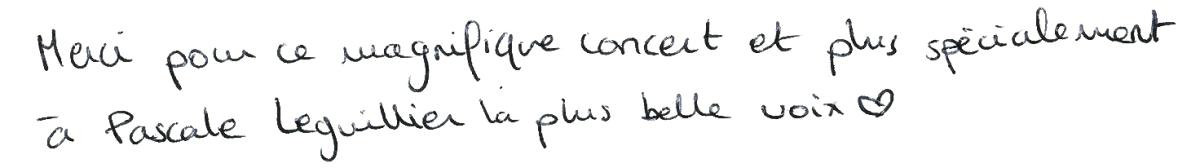 Merci pour ce magnifique concert et plus spécialement
à Pascale Leguillier la plus belle voix ♡